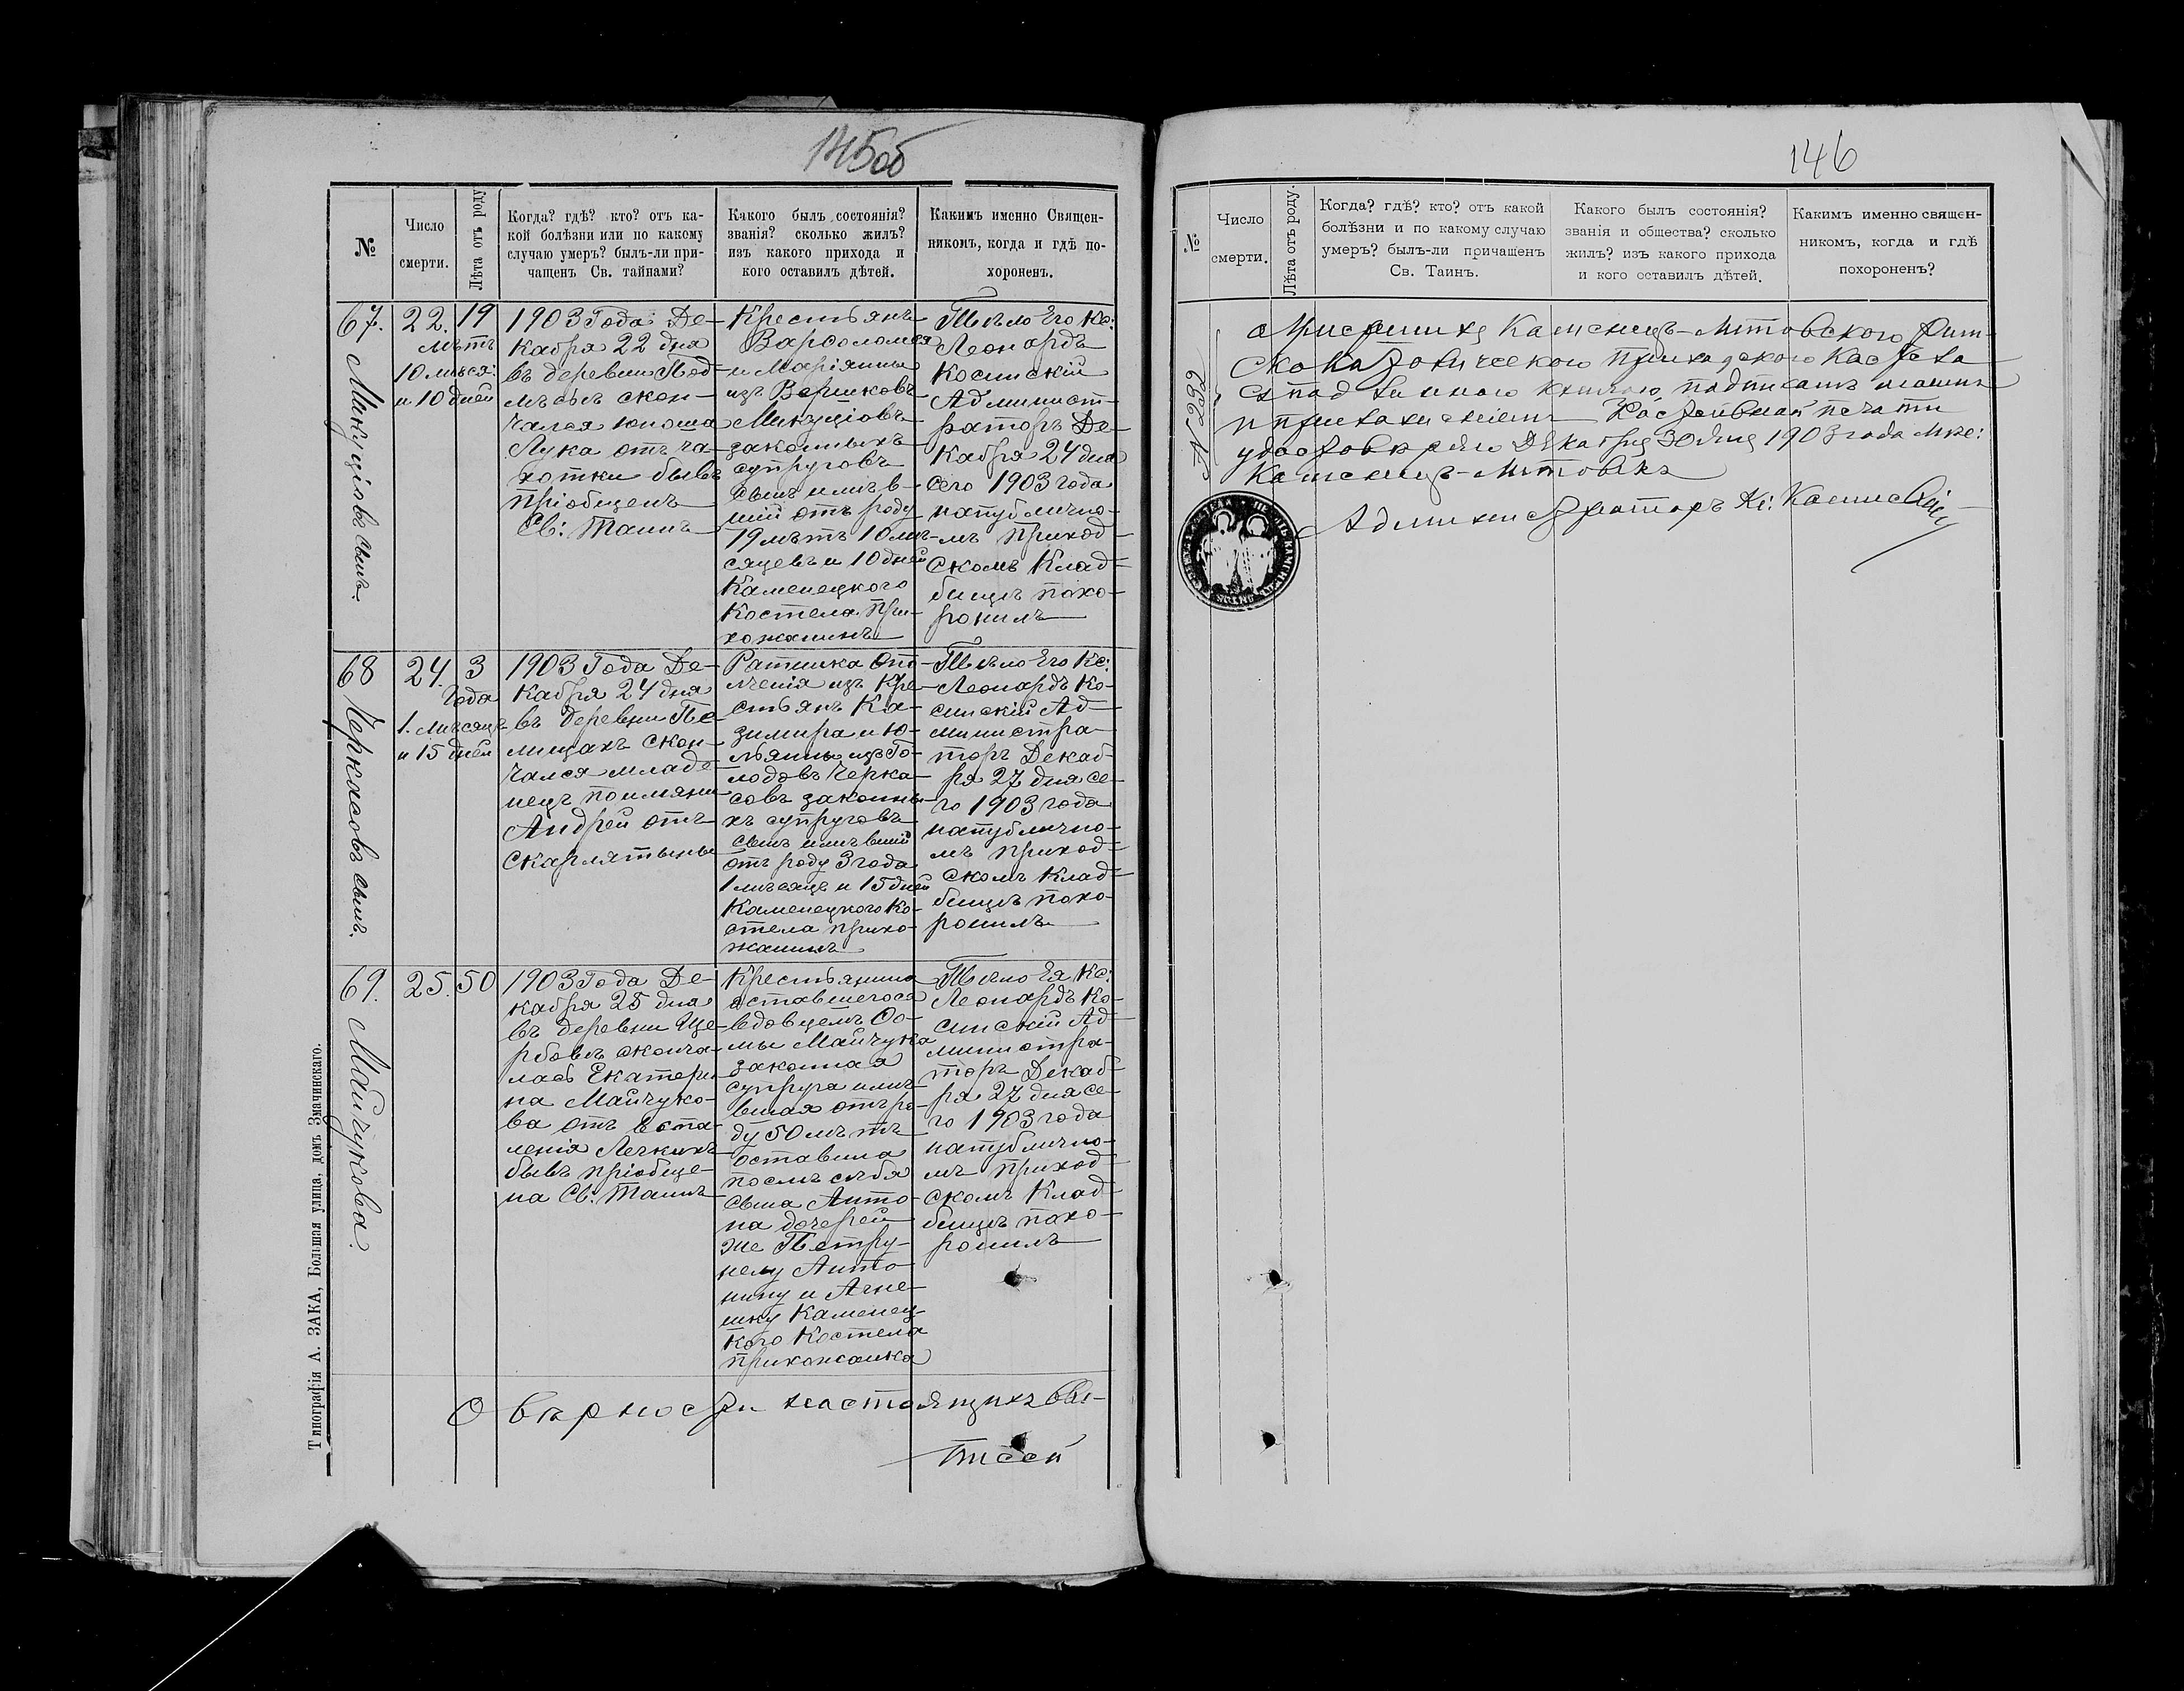 145об
№
Число
смерти.
Лѣта отъ роду
Когда? гдѣ? кто? отъ ка-
кой болѣзни или по какому
случаю умеръ? былъ-ли при-
чащенъ Св. тайнами?
Какого былъ состоянія?
званія? сколько жилъ?
изъ какого прихода и
кого оставилъ дѣтей.
Какимъ именно Священ-
никомъ, когда и гдѣ по-
хороненъ.
67.
Микуціовъ сынъ.
22.
19
лѣтъ
10 мѣся:
и 10 дней
1903 Года Де-
кабря 22 дня
въ деревни Под-
лѣсье скон-
чался юноша
Лука отъ ча-
хотки бывъ
пріобщенъ
Св: Таинъ
Крестьянъ
Варфоломея
и Маріянны
изъ
Микуціовъ
законныхъ
супруговъ
сынъ имѣв-
шій отъ роду
19 лѣтъ 10 мѣ-
сяцевъ и 10 дней
Каменецкого
Костела при-
хожанинъ
Тѣло Его Кс:
Леонардъ
Косинскій
Админист-
раторъ Де-
кабря 24 дня
сего 1903 года
напублично-
мъ приход-
скомъ клад-
бищѣ похо-
ронилъ
68
Черкасовъ сынъ.
24.
3
Года
1. мѣсяцъ
и 15 дней
1903 Года Де-
кабря 24 дня
въ деревни Пе-
лищахъ скон-
чался младе-
нецъ поимяни
Андрей отъ
Скарлятыны
Ратника Опо-
лченія изъ Кре-
стьянъ Ка-
зимира и Ю-
льянны изъ Го-
лодовъ Черка-
совъ законны-
хъ супруговъ
сынъ имѣвшій
отъ роду 3 года
1 мѣсяцъ и 15 дней
Каменецкого Ко-
стела прихо-
жанинъ
Тѣло Его Кс:
Леонардъ Ко-
синскій Ад-
министра-
торъ Декаб-
ря 27 дня се-
го 1903 года
напублично-
мъ приход-
скомъ клад-
бищѣ похо-
ронилъ
69.
Майчукова.
25.
50
1903 Года Де-
кабря 25 дня
въ деревни Ще-
рбовѣ сконча-
лась Екатери-
на Майчуко-
ва отъ воспа-
ленія Легкихъ
бывъ пріобще-
на Св: Таинъ
Крестьянина
оставшегося
вдовцемъ Ѳо-
мы Майчука
законная
супруга имѣ-
вшая отъ ро-
ду 50 лѣтъ
оставила
послѣ себя
сына Анто-
на дочерей
же Петру-
нелу Анто-
нину и Агне-
шку Каменец-
кого Костела
прихожанка
Тѣло Ея Кс:
Леонардъ Ко-
синскій Ад-
министра-
торъ Декаб-
ря 27 дня се-
го 1903 года
напублично-
мъ приход-
скомъ клад-
бищѣ похо-
ронилъ
О вѣрности настоящихъ вы-
писей
Типографія А. ЗАКА, Большая улица, домъ Змачинскаго.
146
№
Число
смерти.
Лѣта отъ роду.
Когда? гдѣ? кто? отъ какой
болѣзни и по какому случаю
умеръ? былъ-ли причащенъ
Св. Таинъ.
Какого былъ состоянія?
званія и общества? сколько
жилъ? изъ какого прихода
и кого оставилъ дѣтей.
Какимъ именно священ-
никомъ, когда и гдѣ
похороненъ?
№ 232
Каменецъ-Литовского Рим-
скокатолического приходского Костела
съ подлинною книгою, подписомъ моимъ
и приложеніемъ Костельной печати
удостовѣряю Декабря 30 дня 1903 года Мѣс:
Каменецъ-Литовскъ
Администраторъ Кс: Косинскій